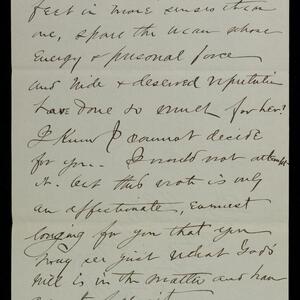 feet in more senses than
one, spare the man whose
energy & personal force
and wide & deserved reputation
have done so much for her?
I know I cannot decide
for you. I would not attempt
it. but this note is only
an affectionate, earnest
longing for you that you
may see just what God's
will is in the matter and have